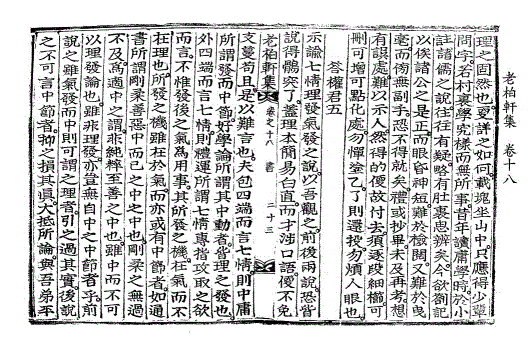 理之固然也更詳之如何載塊坐山中只應得少輩
問字若村裏學究樣而無所事昔年讀庸學時於小
註諸儒之說往往有疑略有肚裏思辨矣今欲劄記
以俟諸公之是正而眼昏神短難於檢閱又難於曳
毫而傍無副手恐不得就矣禮或抄畢未及再考想
有誤處難以示人然得的便故付去須逐段細櫛可
刪可增可點化處勿憚塗乙了則還投勿煩人眼也
答權君五
示諭七情理發氣發之說以吾觀之前後兩說恐皆
說得髐突了蓋理本簡易白直而才涉口語便不免
老柏軒集 卷之十八 書 二十三
支蔓苟且是以難言也夫包四端而言七情則中庸
所謂發而中節好學論所謂其中動者當理之發也
外四端而言七情則禮運所謂七情專指攻取之欲
而言不惟發後之氣爲用事其所發之機在氣而不
在理也所發之機雖在於氣而亦或有中節者如通
書所謂剛柔善惡中而已之中之中也剛柔之無過
不及爲適中之謂非純粹至善之中也雖中而不可
以理發論也雖非理發亦豈無自中之中節者乎前
說之雖氣發而中則可謂之理者引之過其實後說
之不可言中節者抑之損其眞大抵所論與吾弟平
老柏軒集 卷十八